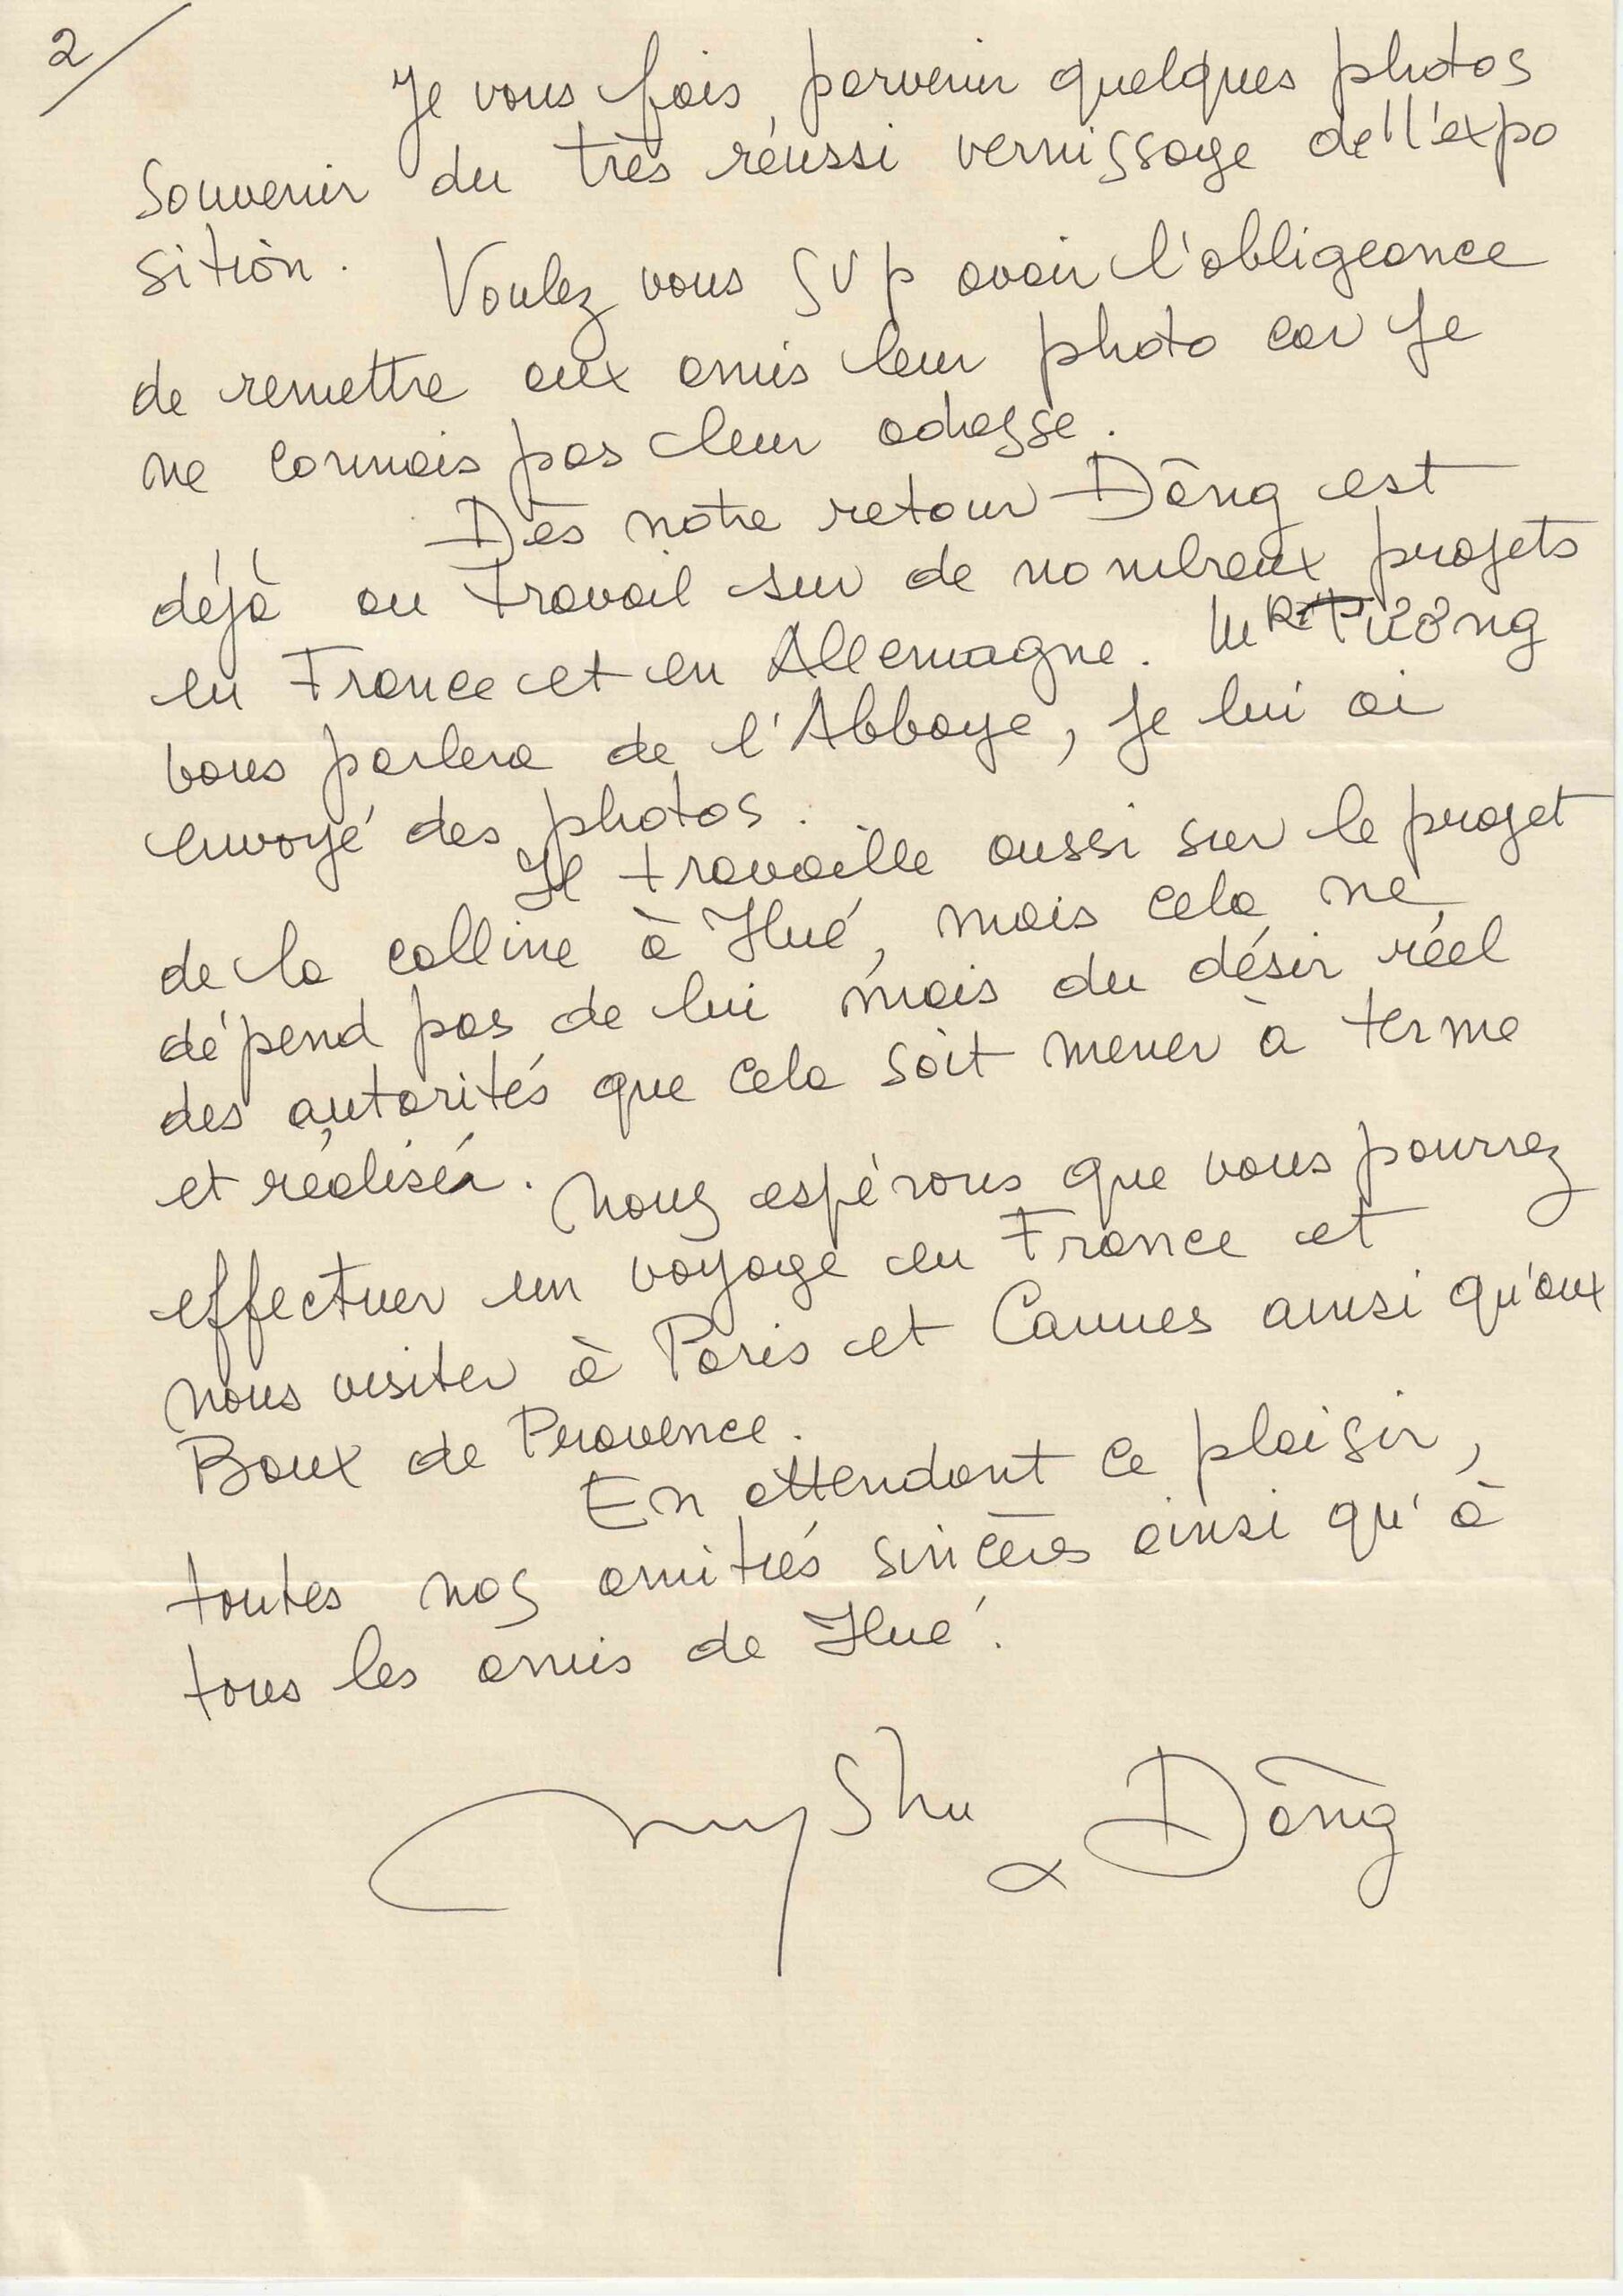 2/
Je vous fais parvenir quelques photos
souvenir du très réussi vernissage de l'expo
sition. Voulez vous SVp avoir l'obligeance
de remettre aux amis leur photo car je
ne connais pas leur adresse.
Dès notre retour Dông est
déjà au travail sur de nombreux projets
en France et en Allemagne. Mr Tường
vous parlera de l'Abbaye, je lui ai
envoyé des photos.
Il travaille aussi sur le projet
de la colline à Hué, mais cela ne
dépend pas de lui mais du désir réel
des autorités que cela soit mener à terme
et réaliser.
Nous espérons que vous pourrez
effectuer un voyage en France et
nous visiter à Paris et Cannes ainsi qu'aux
Baux de Provence.
En attendant ce plaisir,
toutes nos amitiés sincères ainsi qu'à
tous les amis de Hué.
myShu & Dông